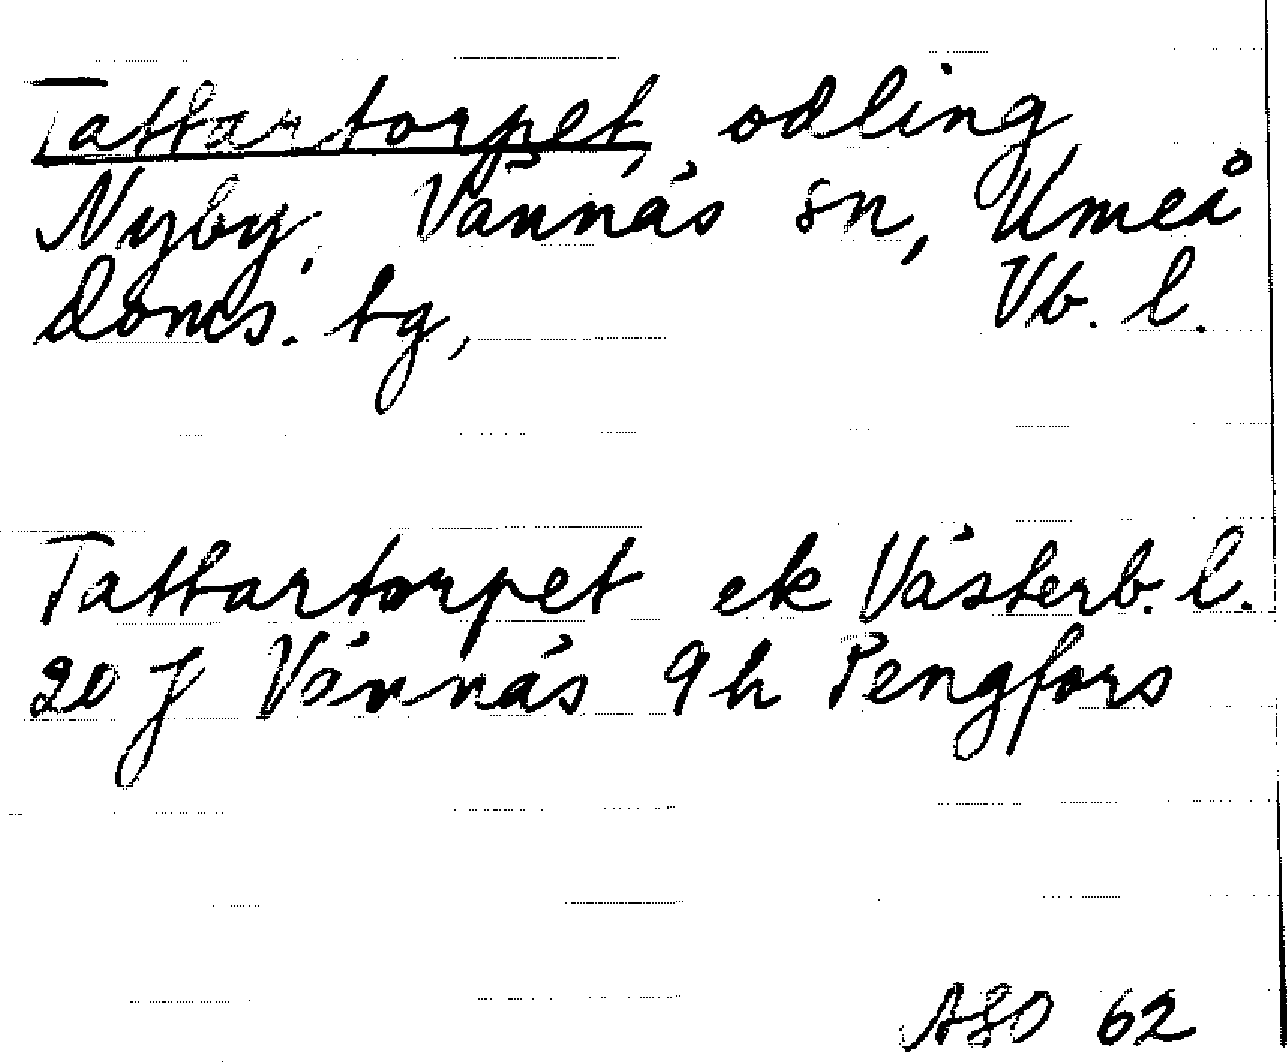 Tattartorpet, odling
Nyby, Vännäs sn, Umeå
doms. tg, Vb. l.
Tattartorpet ek Västerb. l.
20 J Vännäs 9 h Pengfors
ASO 62